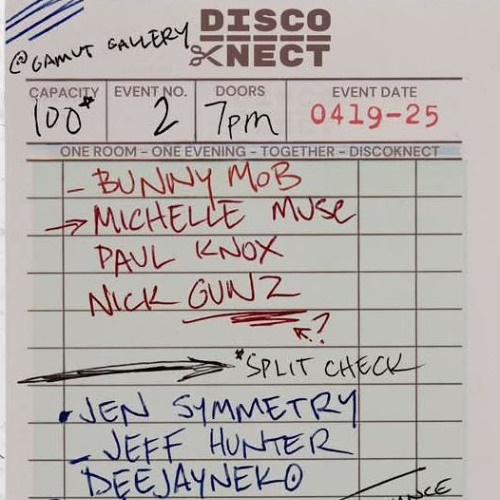 DISCO
KNECT
@GAMUT GALLERY
CAPACITY
100*
EVENT NO.
2
DOORS
7pm
EVENT DATE
0419-25
ONE ROOM – ONE EVENING – TOGETHER – DISCOKNECT
– BUNNY MOB
→ MICHELLE MUSE
PAUL KNOX
NICK GUNZ
?
*SPLIT CHECK
• JEN SYMMETRY
– JEFF HUNTER
DEEJAYNEKO